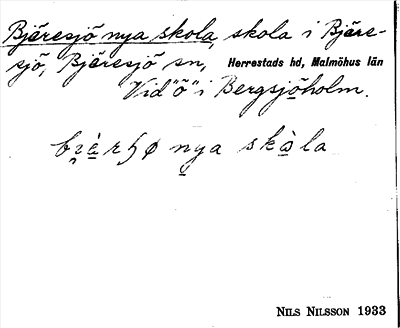 Bjäresjö nya skola, skola i Bjäre-
sjö, Bjäresjö sn, Herrestads hd, Malmöhus län
"Vid "Ö" i Bergsjöholm.
nya skòla
NILS NILSSON 1933